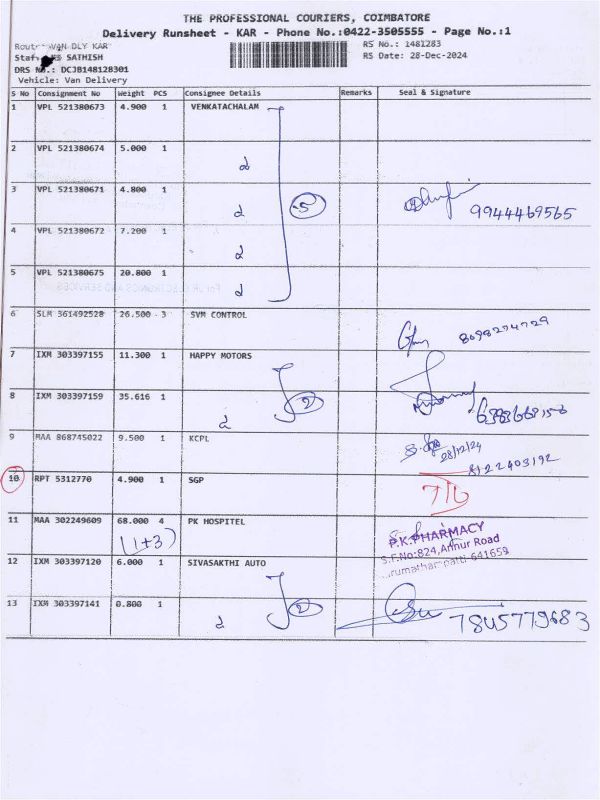 THE PROFESSIONAL COURIERS, COIMBATORE
Delivery Runsheet - KAR - Phone No.:0422-3505555 - Page No.:1
Route VAN DLY KAR
RS No.: 1481283
SATHISH
RS Date: 28-Dec-2024
DRS No.: DCJB148128301
Vehicle: Van Delivery
S No Consignment No Weight PCS Consignee Details Remarks Seal & Signature
1 VPL 521380673 4.900 1 VENKATACHALAM
2 VPL 521380674 5.000 1
3 VPL 521380671 4.800 1 5 9944469565
4 VPL 521380672 7.200 1
5 VPL 521380675 20.800 1
6 SLM 361492528 26.500 - 3 SVM CONTROL
8098274729
7 IXM 303397155 11.300 1 HAPPY MOTORS
8 IXM 303397159 35.616 1 2
9 MAA 868745022 9.500 1 KCPL
28/12/24
8122403192
10 RPT 5312770 4.900 1 SGP
11 MAA 302249609 68.000 4 PK HOSPITEL
(1+3)
P.K.PHARMACY
S.F.No:824,Annur Road
641659
12 IXM 303397120 6.000 1 SIVASAKTHI AUTO
13 IXM 303397141 0.800 1 2 7845779683